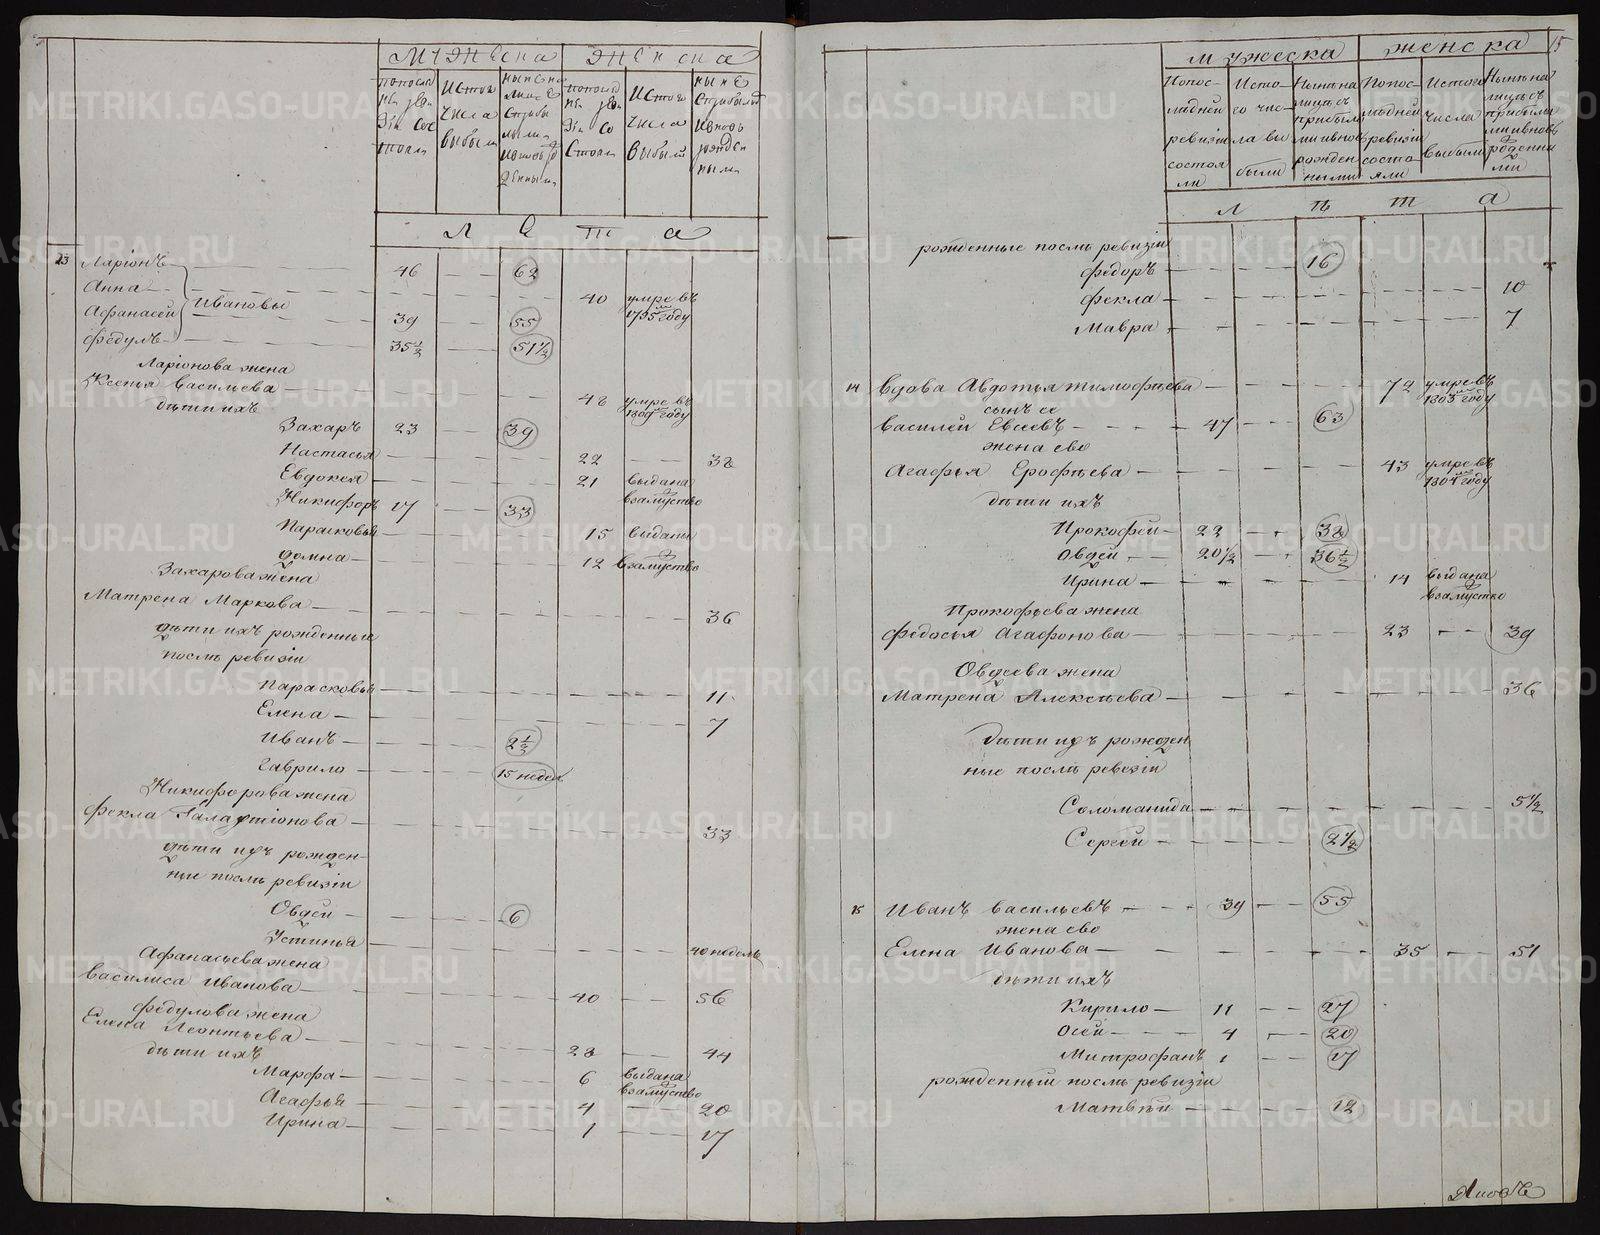 мужеска женска
попоследней ревизіи состояли
изтого числа выбыли
ныне налицо
л е т а
13 Ларіонъ — 46 — 62
Анна — 40 умре въ 1795м году
Ивановы
Афанасей — 39 — 55
Федулъ — 35½ — 51½
Ларіонова жена
Ксенья васильева — 48 умре въ 1809м году
дѣти ихъ
Захаръ 23 — 39
Настасья — 22 — 38
Евдокея — 21 выдана взамуство
Никифоръ 17 — 33
Парасковья — 15 выданы
домна — 12 взамуство
Захарова жена
Матрена Маркова — 36
дѣти ихъ рожденные
послѣ ревизіи
Парасковья — 11
Елена — 7
Иванъ — 2½
Гаврило — 15 недел
Никифорова жена
Фекла Галахтіонова — 33
дѣти ихъ рожден
ные послѣ ревизіи
Овдей — 6
Устинья — 40 недель
Афанасьева жена
василиса Иванова — 40 — 56
Федулова жена
Елена Леонтьева — 28 — 44
дѣти ихъ
Марфа — 6 выдана взамуство
Агафья — 4 — 20
Ирина — 1 — 17
15
мужеска женска
Попоследней ревизіи состояли
Истого числа выбыли
Ныне налицо съ прибылыми ивновь рожденными
Попоследней ревизіи состояли
Истого числа выбыли
Ныне налицо съ прибылыми ивновь рожденными
л ѣ т а
рожденные послѣ ревизіи
Федоръ — 16
Фекла — 10
Мавра — 7
14 вдова Авдотья тимофѣева — 72 умре въ 1803м году
сынъ ее
василей Евсеевъ — 47 — 63
жена ево
Агафья Ерофѣева — 43 умре въ 1804м году
дѣти ихъ
Прокофей — 22 — 38
Овдей — 20½ — 36½
Ирина — 14 выдана взамуство
Прокофьева жена
Федосья Агафонова — 23 — 39
Овдеева жена
Матрена Алексѣева — 36
дѣти ихъ рожден
ные послѣ ревизіи
Соломанида — 5½
Сергей — 2½
15 Иванъ васильевъ — 39 — 55
жена ево
Елена Иванова — 35 — 51
дѣти ихъ
Кирило — 11 — 27
Осей — 4 — 20
Митрофанъ 1 — 17
рожденный послѣ ревизіи
Матвѣй — 12
METRIKI.GASO-URAL.RU